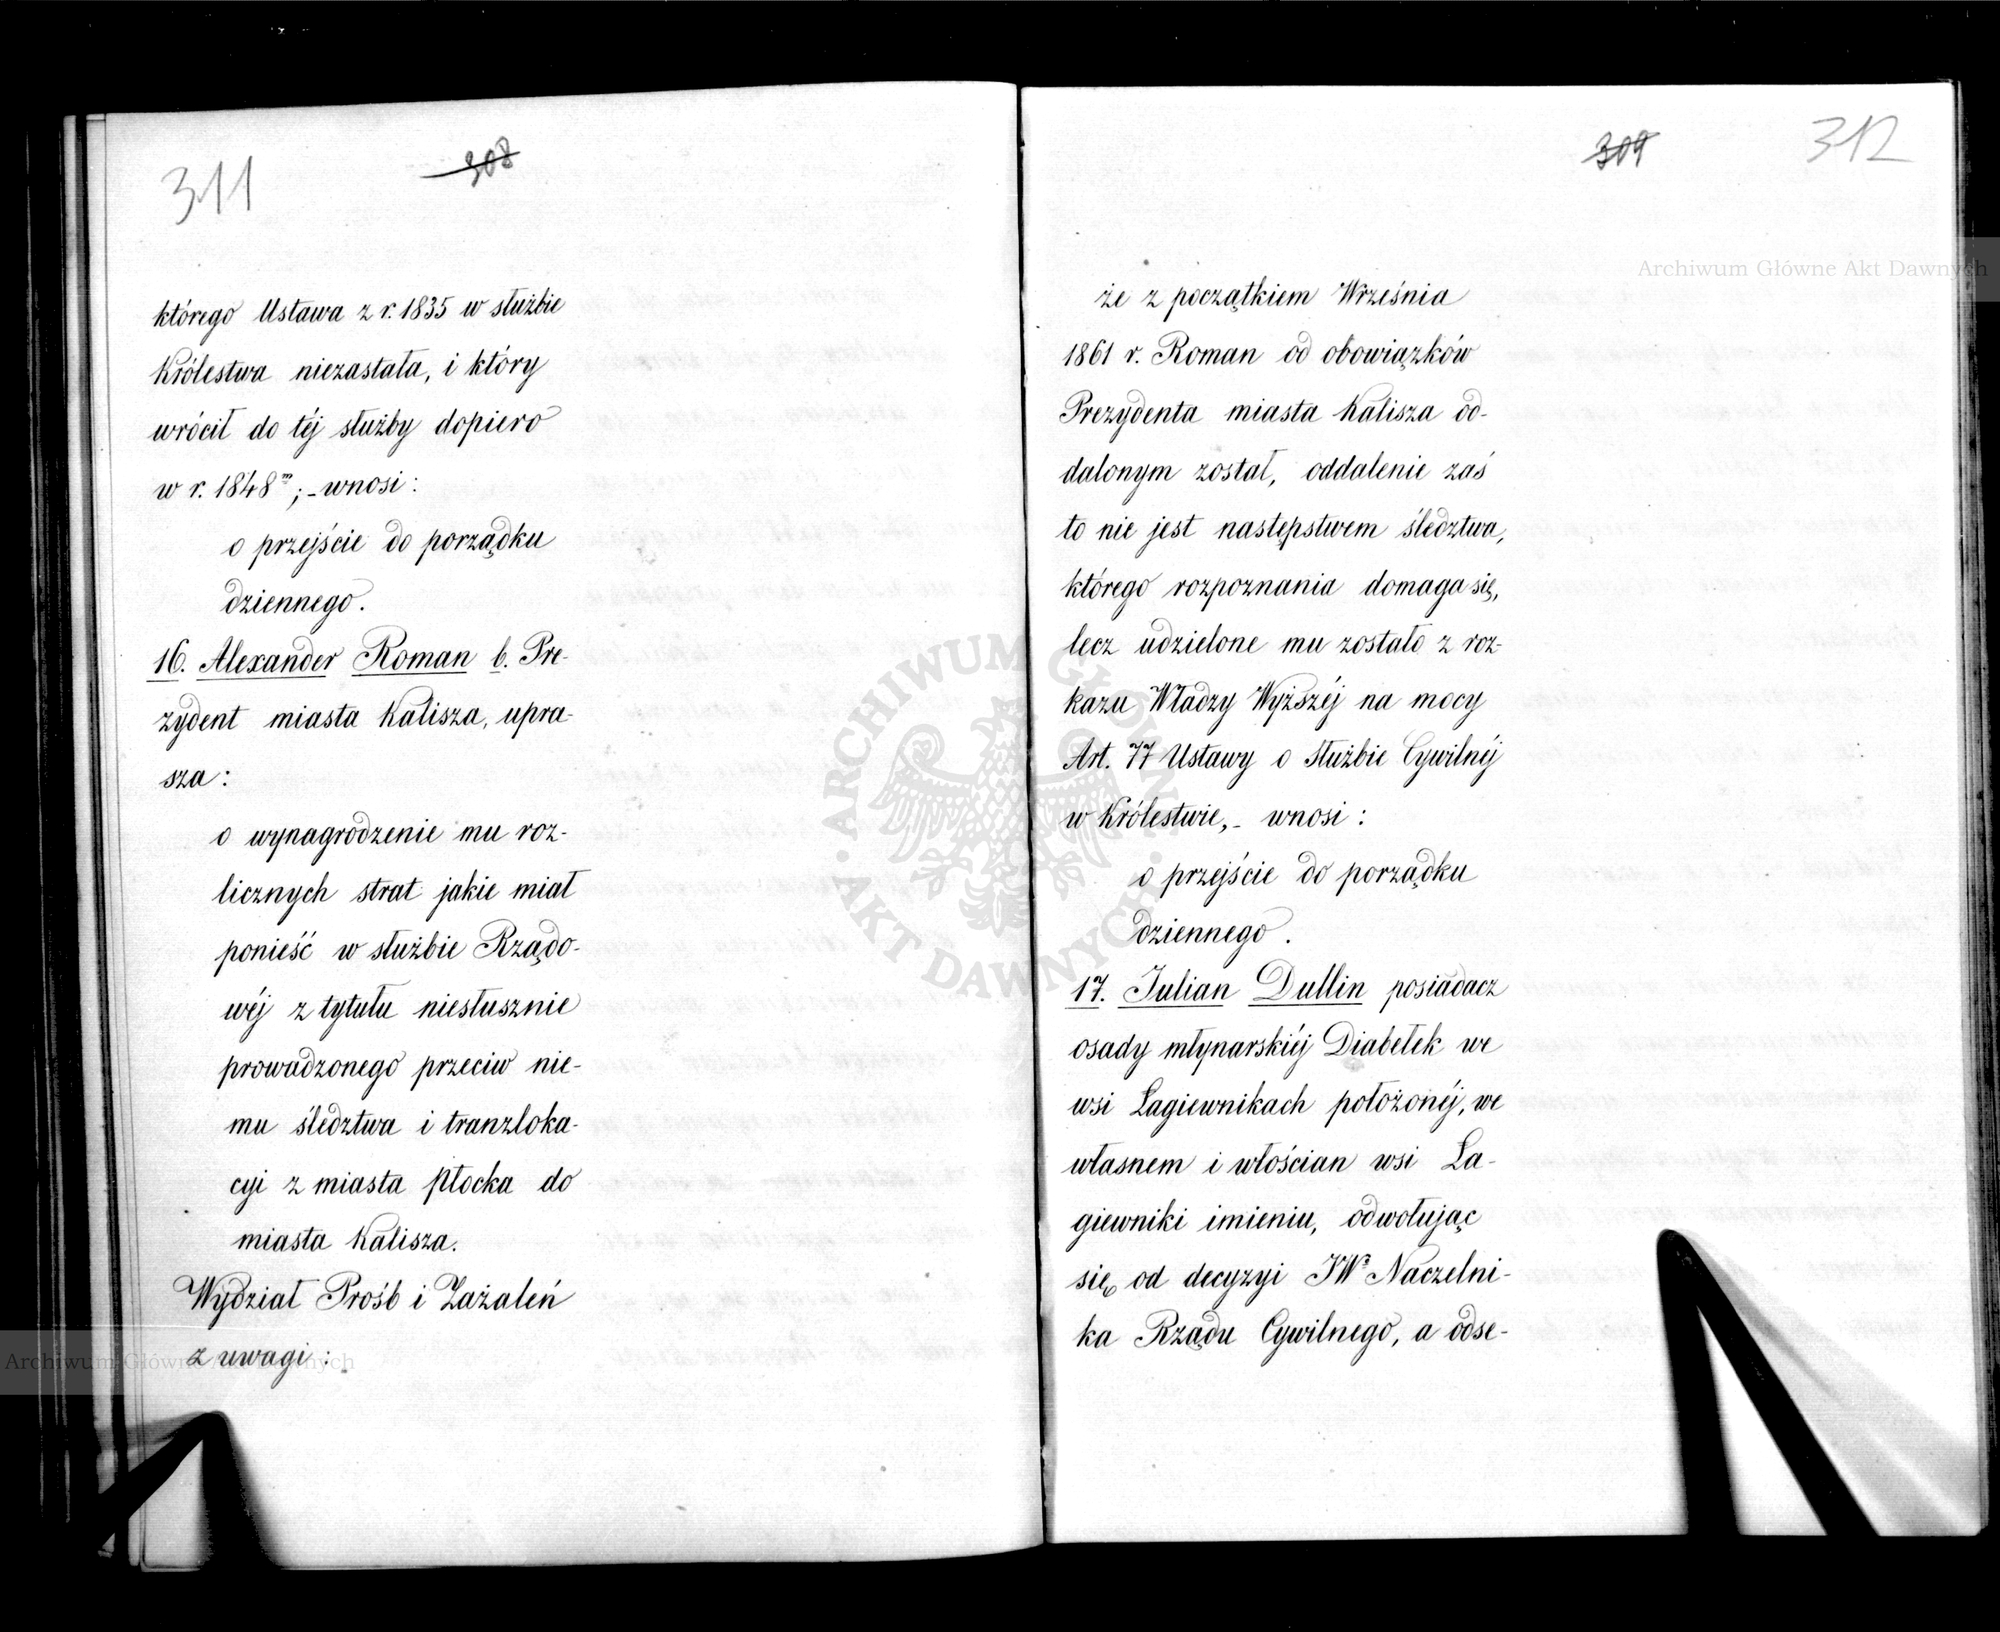 311
308
którego Ustawa z r. 1835 w służbie
Królestwa niezastała, i który
wrócił do téj służby dopiero
w r. 1848m; - wnosi:
o przejście do porządku
dziennego.
16. Alexander Roman b. Pre-
zydent miasta Kalisza, upra-
sza:
o wynagrodzenie mu roz-
licznych strat jakie miał
ponieść w służbie Rządo-
wéj z tytułu niesłusznie
prowadzonego przeciw nie-
mu śledztwa i tranzloka-
cyi z miasta Płocka do
miasta Kalisza.
Wydział Prośb i Zażaleń
z uwagi:
309
312
że z początkiem Września
1861 r. Roman od obowiązków
Prezydenta miasta Kalisza od-
dalonym został, oddalenie zaś
to nie jest następstwem śledztwa,
którego rozpoznania domaga się,
lecz udzielone mu zostało z roz-
kazu Władzy Wyższéj na mocy
Art. 77 Ustawy o Służbie Cywilnéj
w Królestwie, - wnosi:
o przejście do porządku
dziennego.
17. Julian Dullin posiadacz
osady młynarskiéj Diabełek we
wsi Łagiewnikach położonéj, we
własnem i włościan wsi Ła-
giewniki imieniu, odwołując
się od decyzyi JWo Naczelni-
ka Rządu Cywilnego, a odse-
Archiwum Główne Akt Dawnych
ARCHIWUM GŁÓWNE AKT DAWNYCH
Archiwum Główne Akt Dawnych